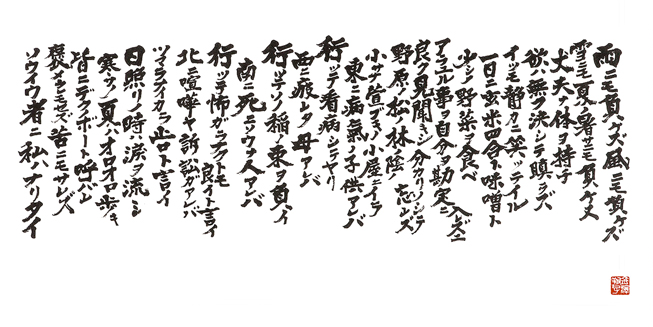 雨ニモ負ケズ風ニモ負ケズ
雪ニモ夏ノ暑サニモ負ケヌ
丈夫ナ体ヲ持チ
欲ハ無ク決シテ瞋ラズ
イツモ静カニ笑ッテイル
一日ニ玄米四合ト味噌ト
少シノ野菜ヲ食ベ
アラユル事ヲ自分ヲ勘定ニ入レズニ
良ク見聞キシ分カリソシテ忘レズ
野原ノ松ノ林ノ陰ノ
小サナ萱ブキノ小屋ニイテ
東ニ病気ノ子供アレバ
行ッテ看病シテヤリ
西ニ疲レタ母アレバ
行ッテソノ稲ノ束ヲ負イ
南ニ死ニソウナ人アレバ
行ッテ怖ガラナクトモ良イト言イ
北ニ喧嘩ヤ訴訟ガアレバ
ツマラナイカラ止メロト言イ
日照リノ時ハ涙ヲ流シ
寒サノ夏ハオロオロ歩キ
皆ニデクノボート呼バレ
褒メラレモセズ苦ニモサレズ
ソウイウ者ニ私ハナリタイ